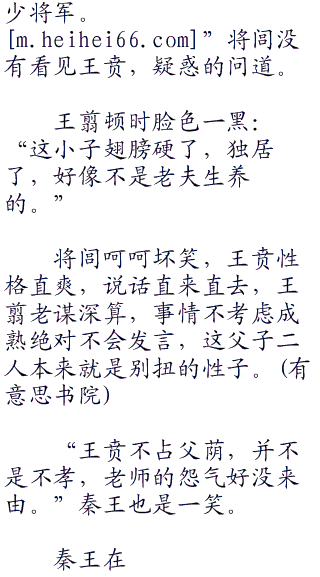 少将军。
[m.heihei66.com]”将闾没
有看见王贲，疑惑的问道。
王翦顿时脸色一黑：
“这小子翅膀硬了，独居
了，好像不是老夫生养
的。”
将闾呵呵坏笑，王贲性
格直爽，说话直来直去，王
翦老谋深算，事情不考虑成
熟绝对不会发言，这父子二
人本来就是别扭的性子。(有
意思书院)
“王贲不占父荫，并不
是不孝，老师的怨气好没来
由。”秦王也是一笑。
秦王在